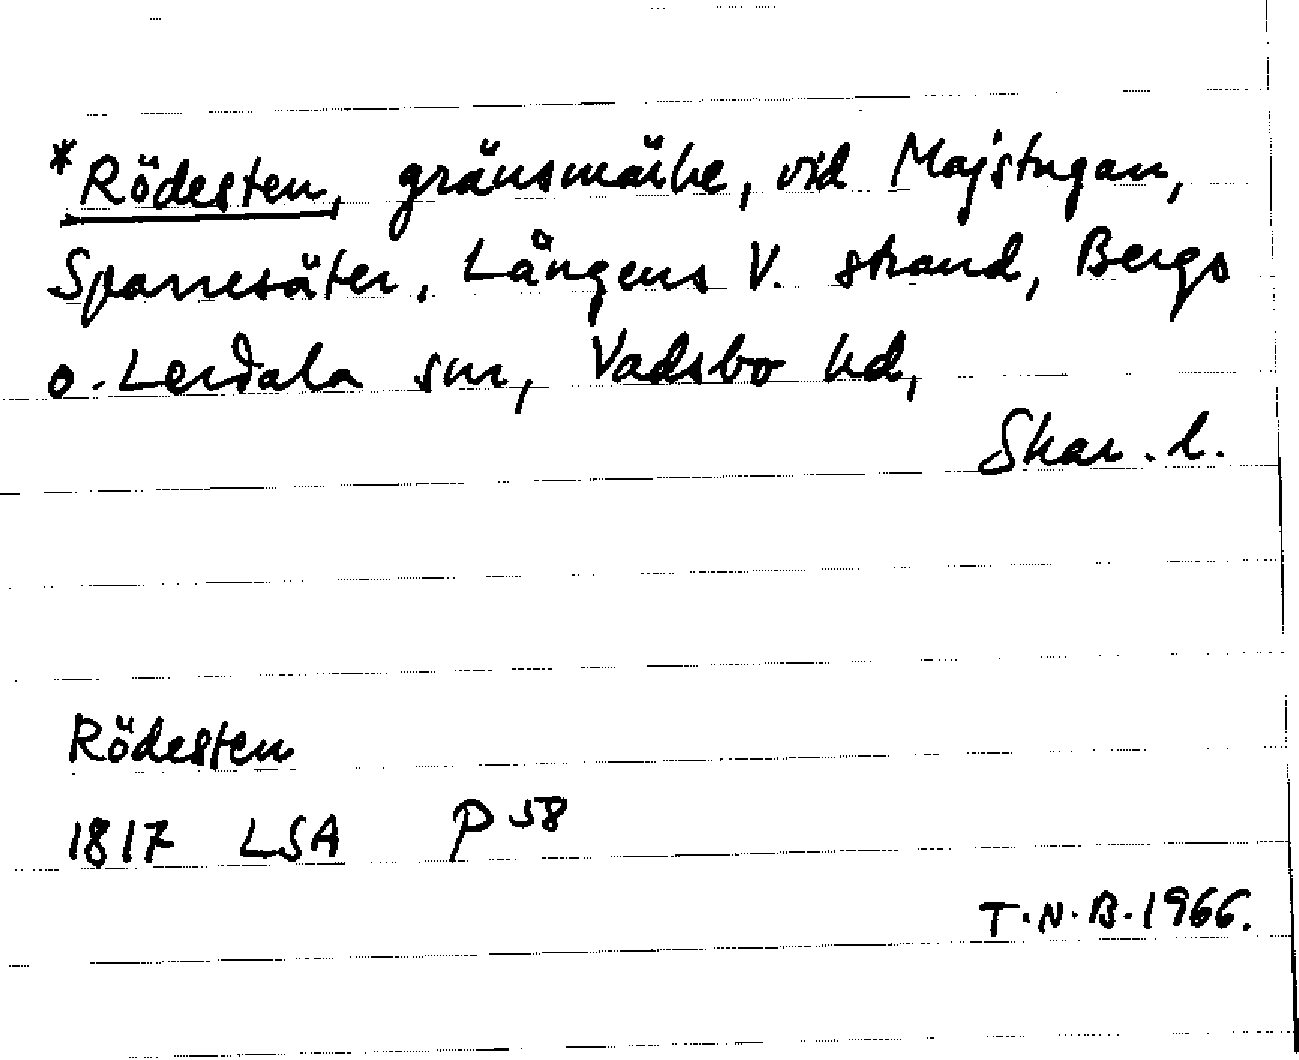 *Rödesten, gränsmärke, vid Majstugan,
Sparresäter, Långens V. strand, Bergs
o. Lerdala snr, Vadsbo hd,
Skar. l.
Rödesten
1817 LSA P 58
T.N.B. 1966.